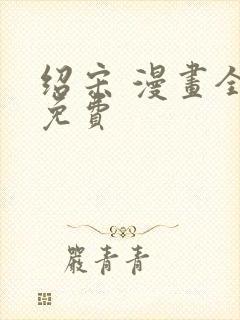 绍宋 漫畫全
免費
嚴青青